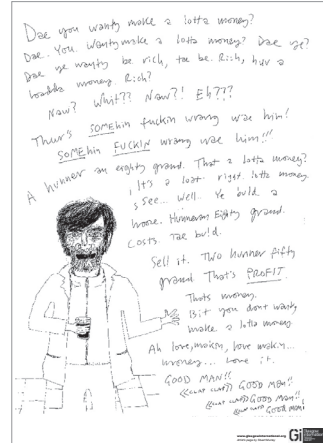 Dae you wanty make a lotta money?
Dae. You. Wanty make a lotta money? Dae ye?
Dae ye wanty be rich, tae be. Rich, huv a
loadda money. Rich?
Naw? Whit?? Naw?! Eh???
Thur's SOMEhin fuckin wrang wae him!
SOMEhin FUCKIN wrang wae him!!!
A hunner an eighty grand. That a lotta money?
It's a loat. right. lotta money.
See... Well.. Ye build a
hoose. Hunneran Eighty grand.
Costs. Tae build.
Sell it. Two hunner fifty
grand That's PROFIT.
Thats money.
Bit you dont wanty
make a lotta money
Ah love, makin, love makin...
money... Love it.
GOOD MAN!!
<<CLAP CLAP>> GOOD MAN!!
<<CLAP CLAP>> GOOD MAN!!
<<CLAP CLAP>> GOOD MAN!
www.glasgowinternational.org